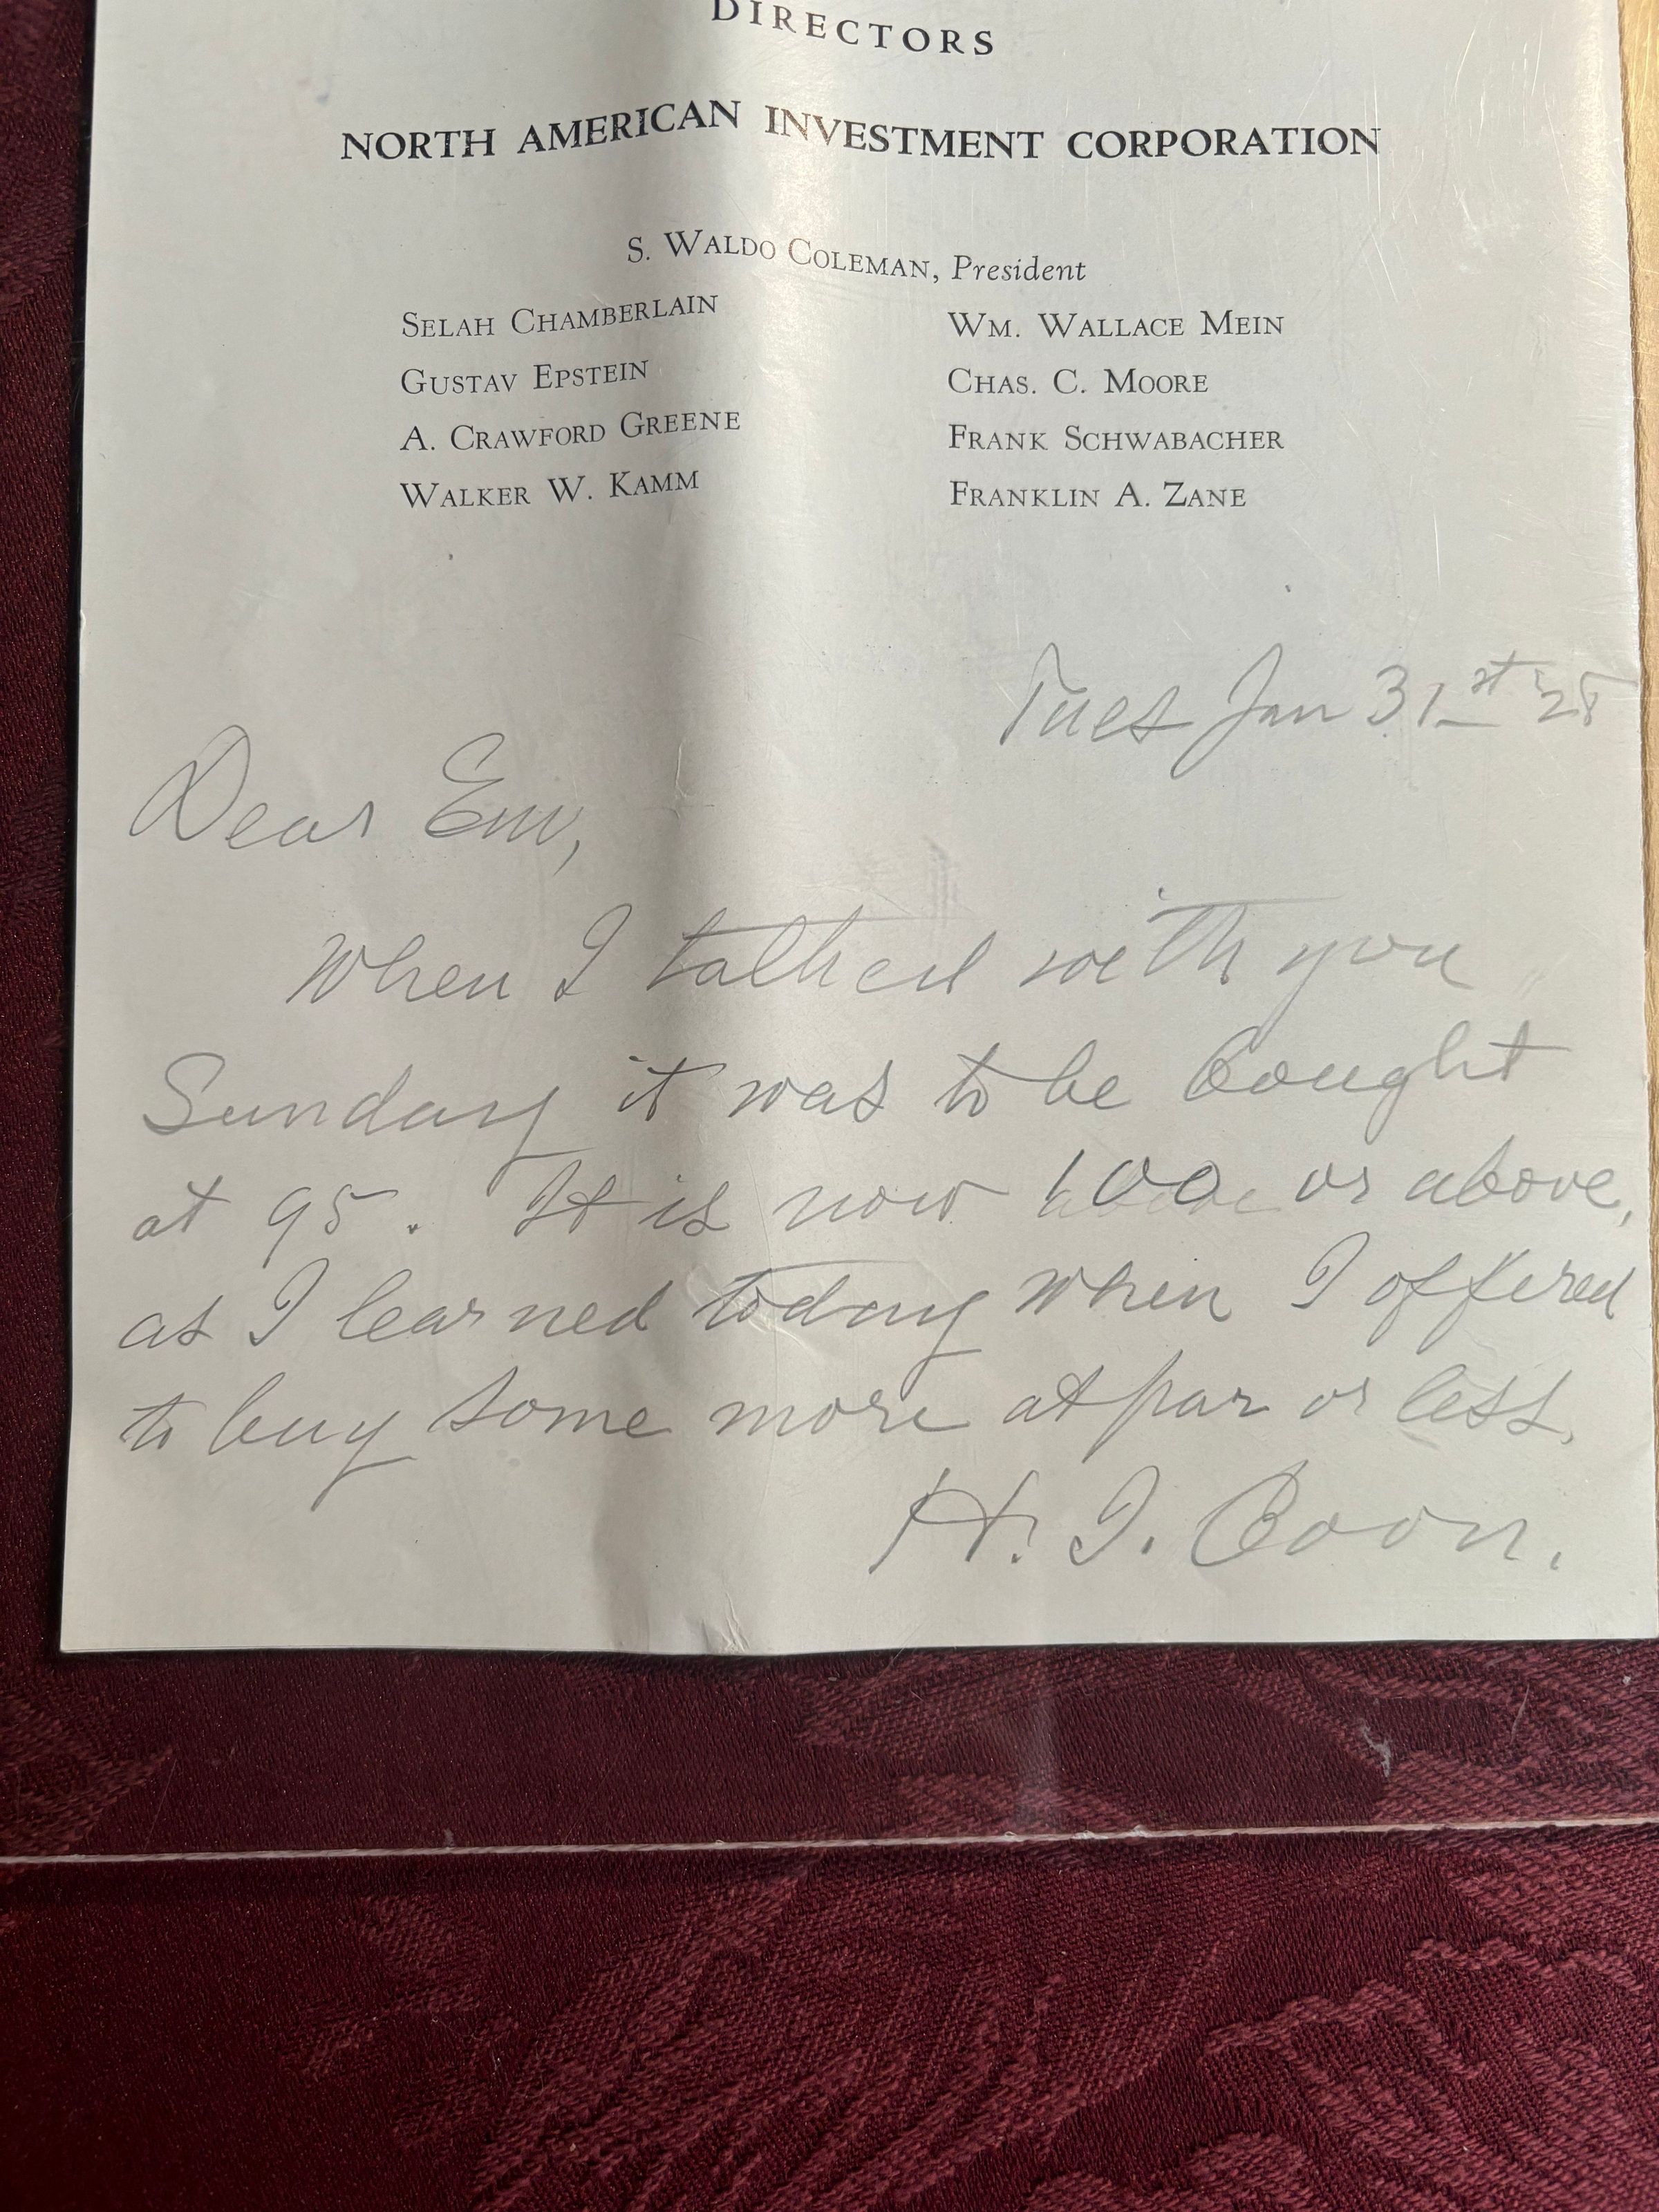 DIRECTORS
NORTH AMERICAN INVESTMENT CORPORATION
S. WALDO COLEMAN, President
SELAH CHAMBERLAIN
GUSTAV EPSTEIN
A. CRAWFORD GREENE
WALKER W. KAMM
WM. WALLACE MEIN
CHAS. C. MOORE
FRANK SCHWABACHER
FRANKLIN A. ZANE
Tues Jan 31st '28
Dear Em,
When I talked with you
Sunday it was to be bought
at 95. It is now 100 or above,
as I learned today when I offered
to buy some more at par or less.
H. I. Coon.